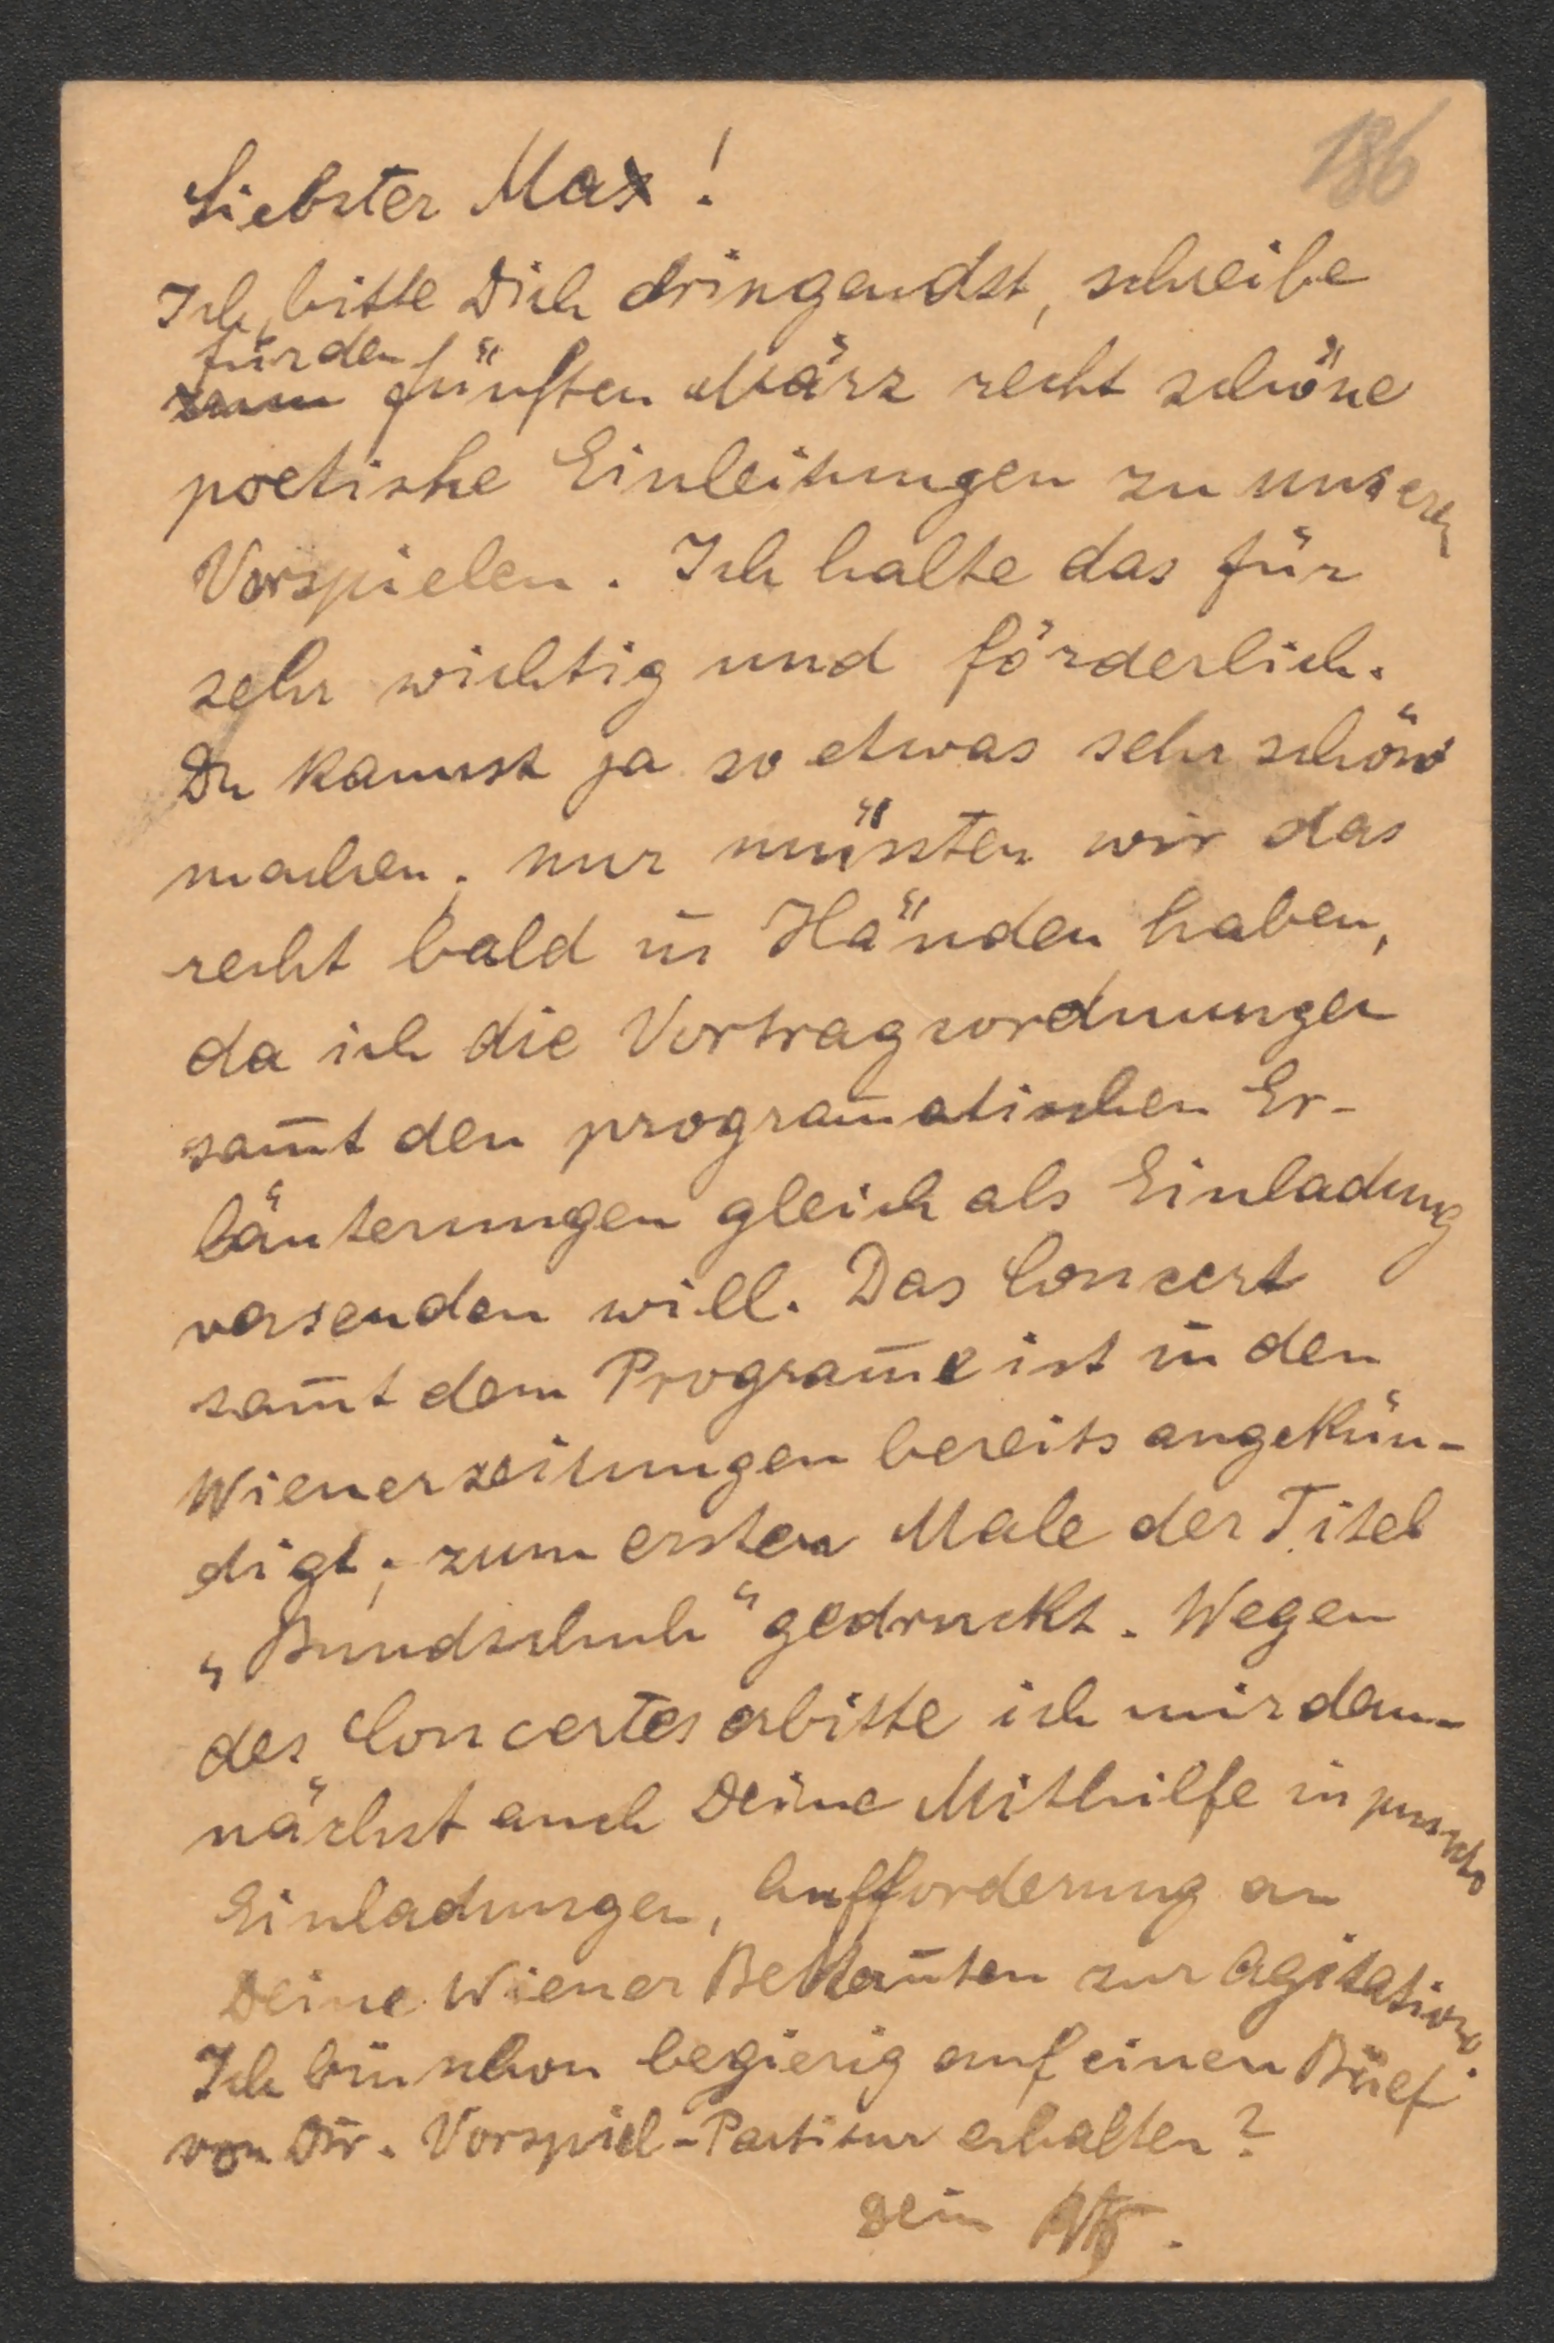 186
Liebster Max!
Ich bitte Dich dringendst, schreibe
für den
zum fünften März recht schöne
poetishe Einleitungen zu unseren
Vorspielen. Ich halte das für
sehr wichtig und förderlich.
Du kannst ja so etwas sehr schön
machen; nur müssten wir das
recht bald in Händen haben,
da ich die Vortragsordnungen
sam̅t den program̅atischen Er-
läuterungen gleich als Einladung
versenden will. Das Concert
sam̅t dem Program̅e ist in den
Wienerzeitungen bereits angekün-
digt; zum ersten Male der Titel
„Bundschuh“ gedruckt. Wegen
des Concertes erbitte ich mir dem-
nächst auch Deine Mithilfe in puncto
Einladungen, Aufforderung an
Deine Wiener Bekan̅ten zur Agitation.
Ich bin schon begierig auf einen Brief
von Dir. Vorspiel-Partitur erhalten?
Dein